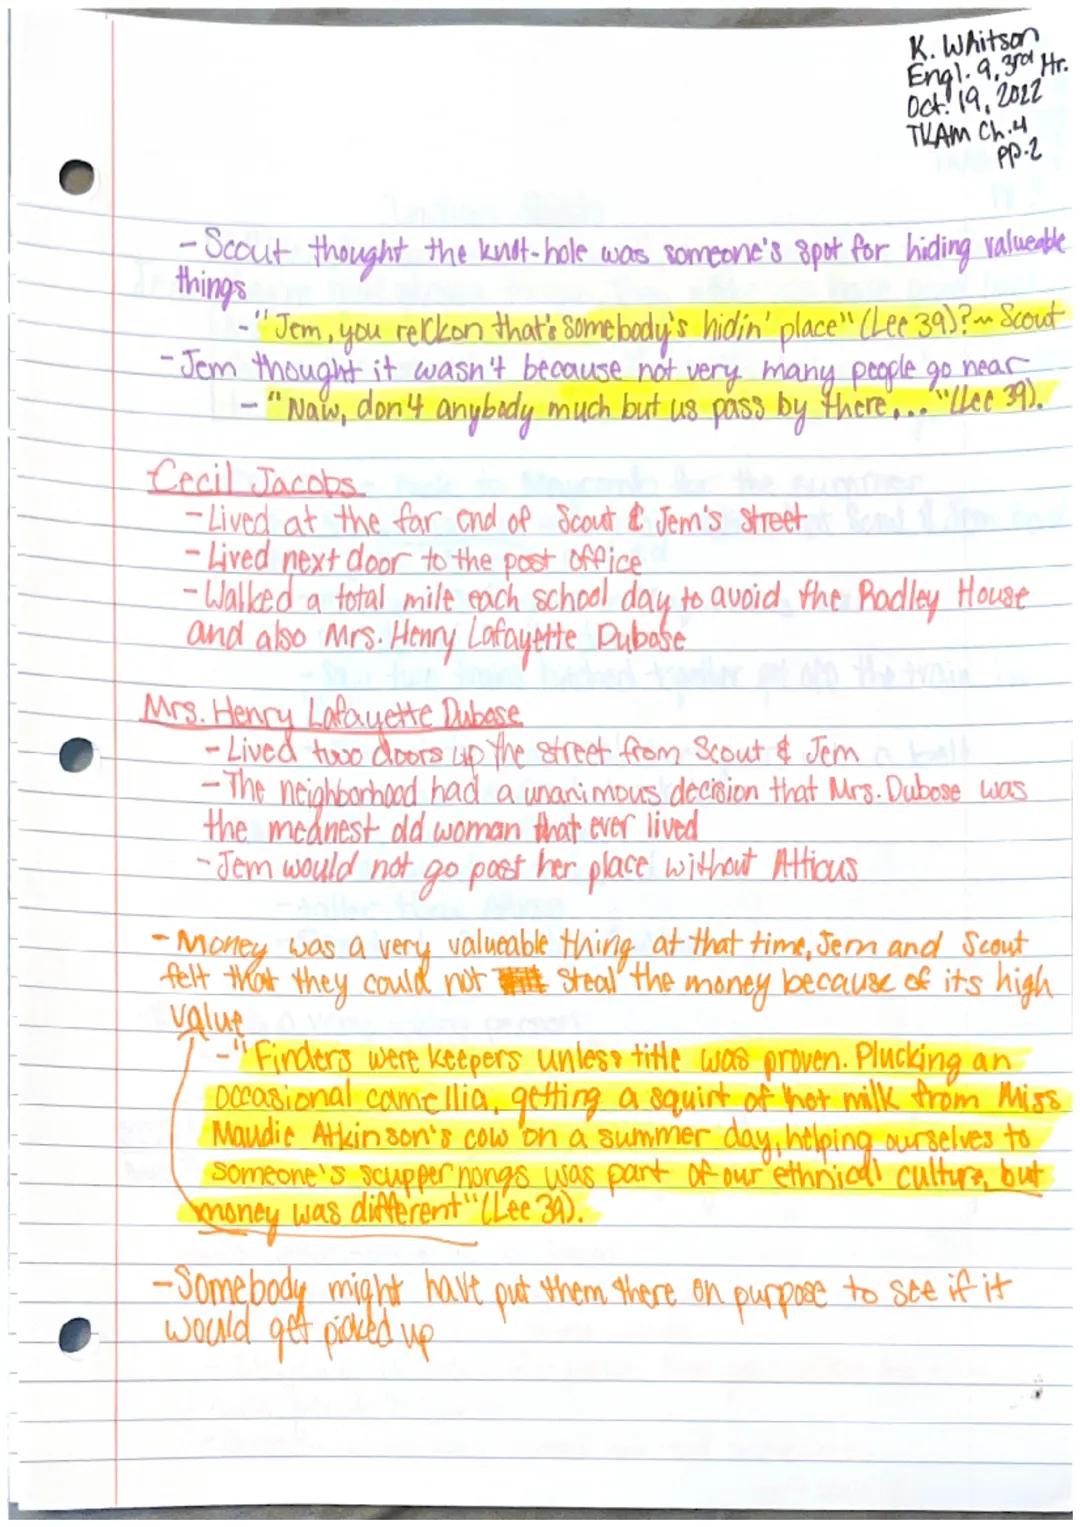 K. Whitson
Engl. 9, 3rd Hr.
Oct. 19, 2022
TKAM Ch.4
pp.2
- Scout thought the knot-hole was someone's spot for hiding valueable
things
-"Jem, you reckon that's somebody's hidin' place" (Lee 39)?~ Scout
- Jem thought it wasn't because not very many people go near
- "Naw, don't anybody much but us pass by there..." (Lee 39).
Cecil Jacobs
- Lived at the far end of Scout & Jem's street
- Lived next door to the post office
- Walked a total mile each school day to avoid the Radley House
and also Mrs. Henry Lafayette Dubose
Mrs. Henry Lafayette Dubose
- Lived two doors up the street from Scout & Jem
- The neighborhood had a unanimous decision that Mrs. Dubose was
the meanest old woman that ever lived
- Jem would not go past her place without Atticus
- Money was a very valueable thing at that time, Jem and Scout
felt that they could not steal the money because of its high
value
-"Finders were keepers unless title was proven. Plucking an
occasional camellia, getting a squirt of hot milk from Miss
Maudie Atkinson's cow on a summer day, helping ourselves to
someone's scuppernongs was part of our ethnical culture, but
money was different" (Lee 39).
- Somebody might have put them there on purpose to see if it
would get picked up